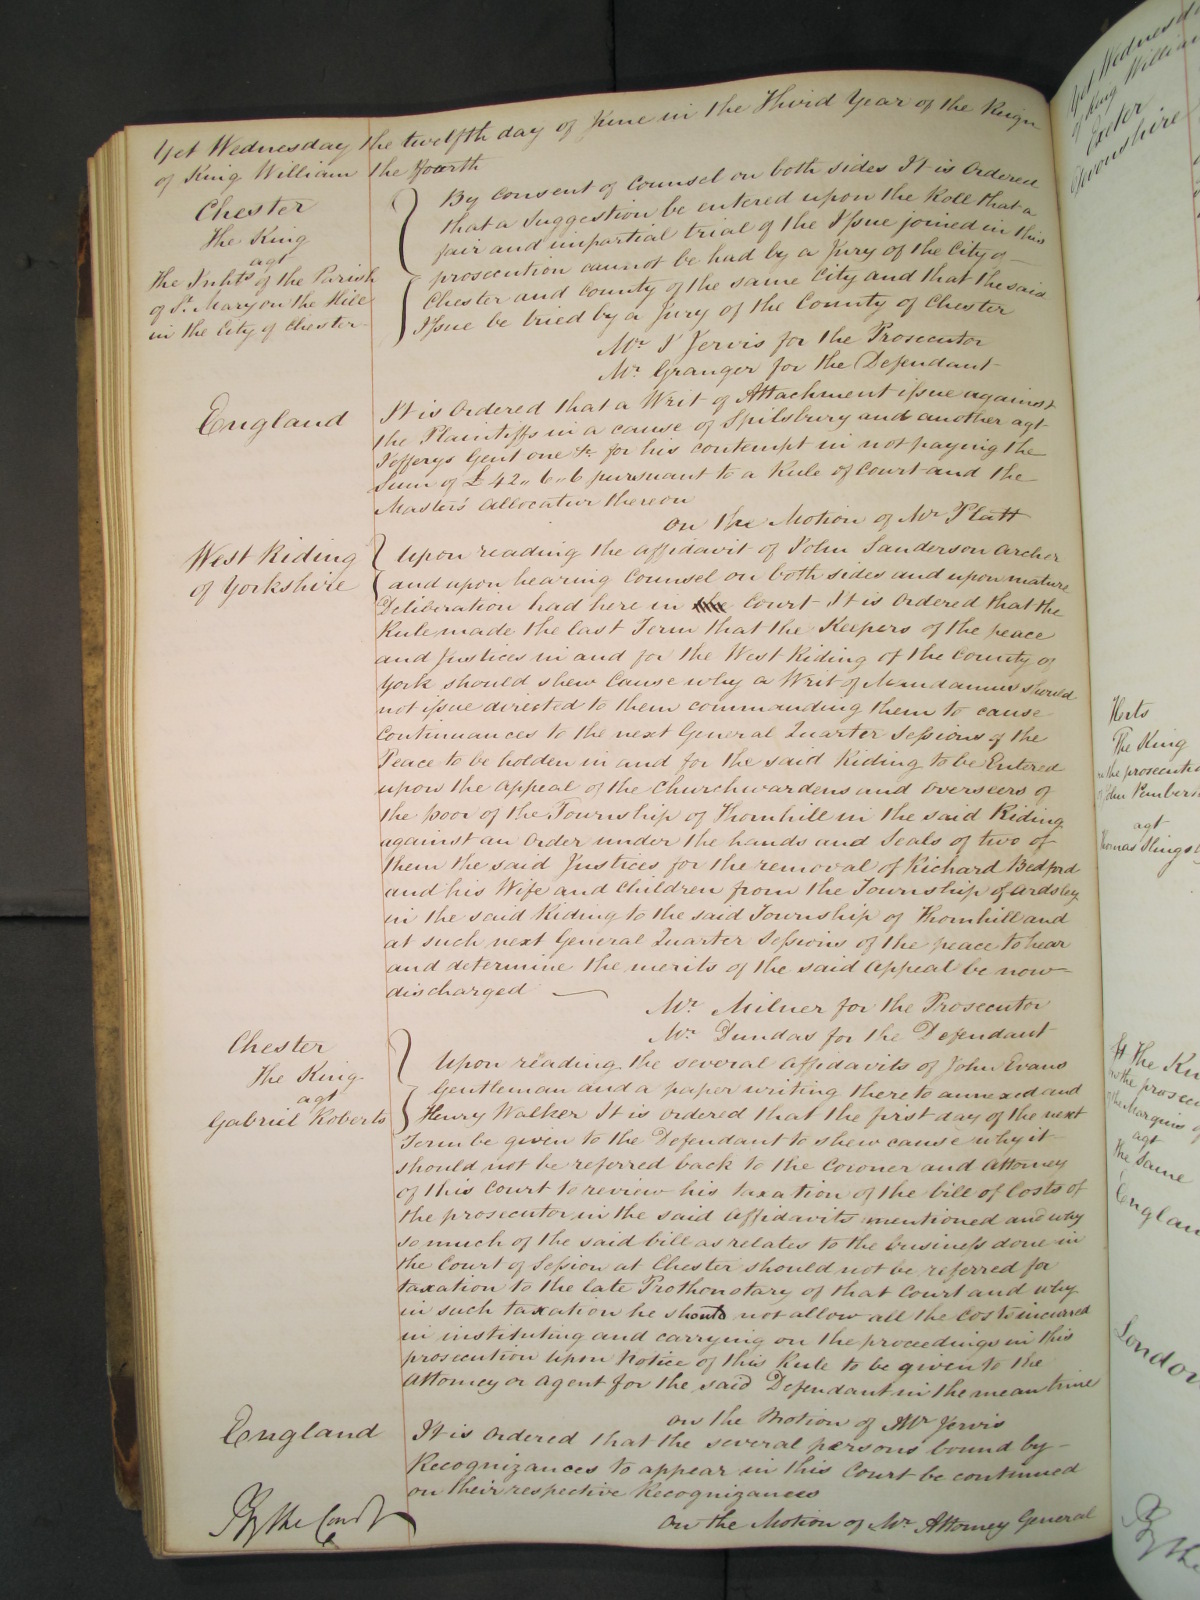 Yet Wednesday the twelfth day of June in the Third Year of the Reign
of King William the Fourth
Chester
The King
agt
The Inhts of the Parish
of St. Mary on the Hill
in the City of Chester
By Consent of Counsel on both sides It is Ordered
that a Suggestion be entered upon the Roll that a
fair and impartial trial of the Issue joined in this
prosecution cannot be had by a Jury of the City of
Chester and County of the same City and that the said
Issue be tried by a Jury of the County of Chester
Mr. J Jervis for the Prosecutor
Mr. Granger for the Defendant
England
It is Ordered that a Writ of Attachment issue against
the Plaintiffs in a cause of Spilsbury and another agt
Jefferys Gent one &c for his contempt in not paying the
Sum of £42,, 6,, 6 pursuant to a Rule of Court and the
Master's allocatur thereon
On the Motion of Mr Platt
West Riding
of Yorkshire
Upon reading the affidavit of John Sanderson Archer
and upon hearing Counsel on both sides and upon mature
Deliberation had here in Court It is Ordered that the
Rule made the last Term that the Keepers of the peace
and Justices in and for the West Riding of the County of
York should shew Cause why a Writ of Mandamus should
not issue directed to them commanding them to cause
Continuances to the next General Quarter Sessions of the
Peace to be holden in and for the said Riding to be Entered
upon the Appeal of the Churchwardens and Overseers of
the poor of the Township of Thornhill in the said Riding
against an Order under the hands and Seals of two of
them the said Justices for the removal of Richard Bedford
and his Wife and Children from the Township of Ardsley
in the said Riding to the said Township of Thornhill and
at such next General Quarter Sessions of the peace to hear
and determine the merits of the said Appeal be now
discharged
Mr. Milner for the Prosecutor
Mr. Dundas for the Defendant
Chester
The King
agt
Gabriel Roberts
Upon reading the several Affidavits of John Evans
Gentleman and a paper writing thereto annexed and
Henry Walker It is ordered that the first day of the next
Term be given to the Defendant to shew cause why it
should not be referred back to the Coroner and Attorney
of this Court to review his taxation of the bill of Costs of
the prosecutor in the said Affidavits mentioned and why
so much of the said bill as relates to the business done in
the Court of Session at Chester should not be referred for
taxation to the late Prothonotary of that Court and why
in such taxation he should not allow all the Costs incurred
in instituting and carrying on the proceedings in this
prosecution upon Notice of this Rule to be given to the
Attorney or Agent for the said Defendant in the mean time
On the Motion of Mr Jervis
England
It is Ordered that the several persons bound by
Recognizances to appear in this Court be continued
on their respective Recognizances
On the Motion of Mr Attorney General
By the Court
Yet Wednesda
of King William
Exeter
Devonshire
Herts
The King
on the prosecutio
John Pember
agt
Thomas Slingsb
The Kin
on the prosecu
agt
The Same
Englan
London
By the